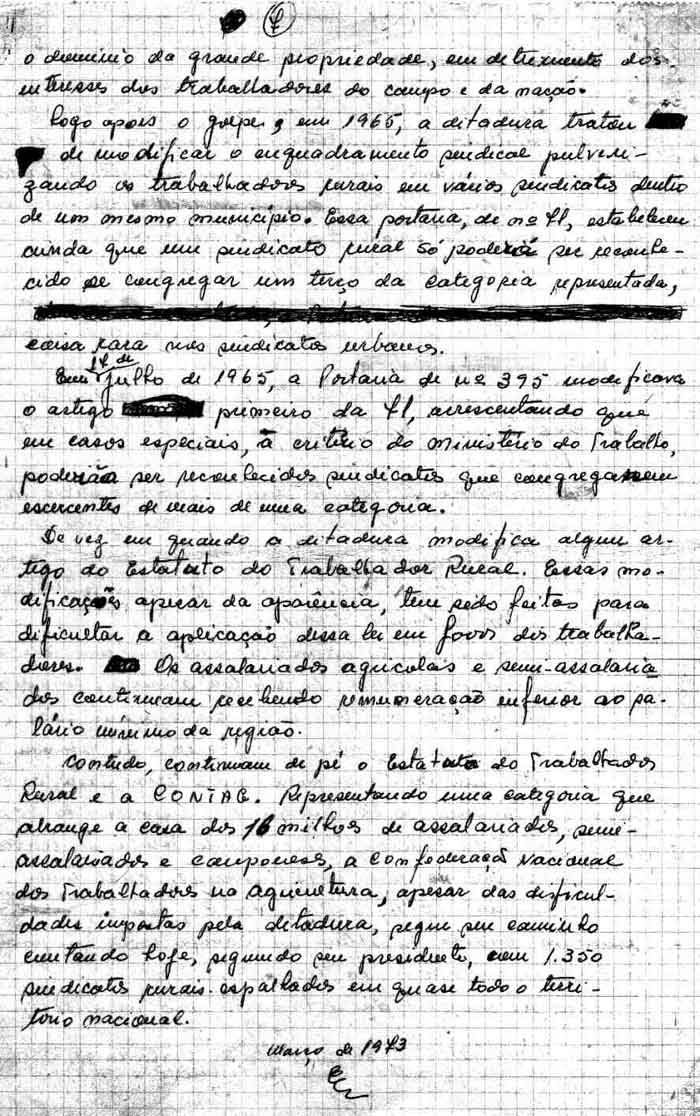 o domínio da grande propriedade, em detrimento dos
interesses dos trabalhadores do campo e da nação.
Logo após o golpe, em 1965, a ditadura tratou
de modificar o enquadramento sindical pulveri-
zando os trabalhadores rurais em vários sindicatos dentro
de um mesmo município. Essa portaria, de nº 71, estabeleceu
ainda que um sindicato rural só poderá ser reconhe-
cido se congregar um terço da categoria representada,
coisa rara nos sindicatos urbanos.
Em 17 de julho de 1965, a Portaria de nº 395 modificava
o artigo primeiro da 71, acrescentando que
em casos especiais, à critério do Ministério do Trabalho,
poderão ser reconhecidos sindicatos que congregassem
exercentes de mais de uma categoria.
De vez em quando a ditadura modifica algum ar-
tigo do Estatuto do Trabalhador Rural. Essas mo-
dificações apesar da aparência, tem sido feitas para
dificultar a aplicação dessa lei em favor dos trabalha-
dores. Os assalariados agrícolas e semi-assalaria
dos continuam recebendo remuneração inferior ao sa-
lário mínimo da região.
Contudo, continuam de pé o Estatuto do Trabalhador
Rural e a CONTAG. Representando uma categoria que
abrange a casa dos 16 milhões de assalariados, semi-
assalariados e camponeses, a Confederação Nacional
dos Trabalhadores na Agricultura, apesar das dificul-
dades impostas pela ditadura, segue seu caminho
contando hoje, segundo seu presidente, com 1.350
sindicatos rurais espalhados em quase todo o terri-
tório nacional.
Março de 1973